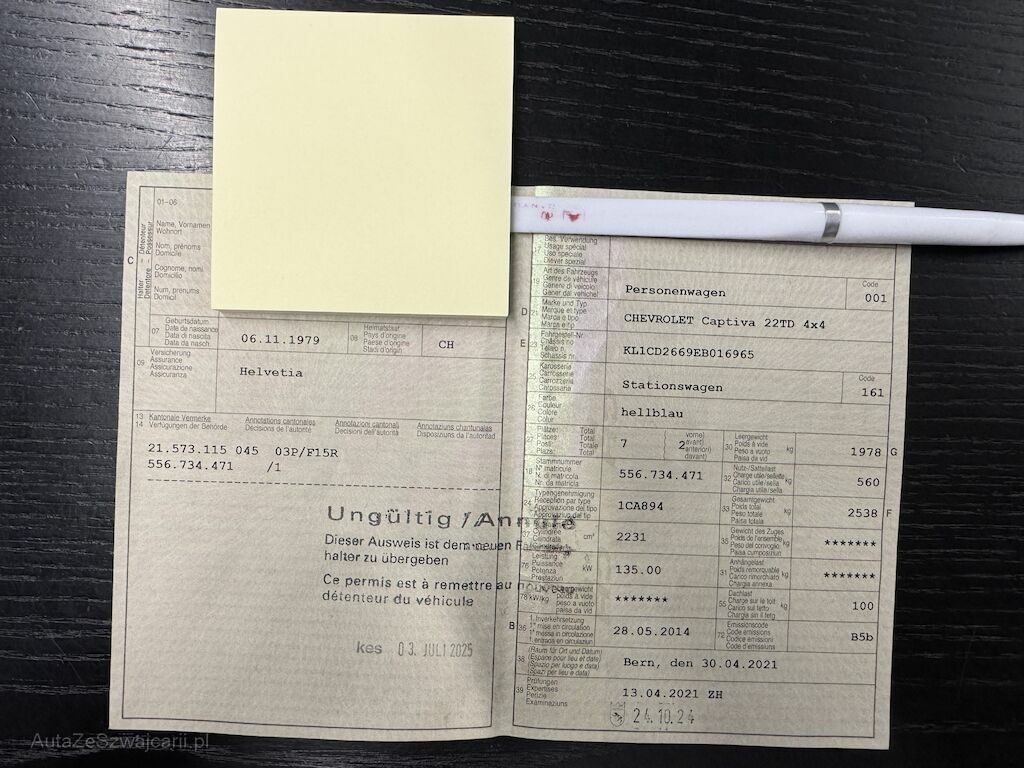 01-06
Name, Vornamen
Wohnort
Nom, prénoms
Domicile
Cognome, nomi
Domicilio
Num, prenums
Domicil
C
Halter – Détenteur
Detentore – Possessur
07
Geburtsdatum
Date de naissance
Data di nascita
Data da nasch.
06.11.1979
08
Heimatstaat
Pays d'origine
Paese d'origine
Stadi d'origin
CH
09
Versicherung
Assurance
Assicurazione
Assicuranza
Helvetia
13
14
Kantonale Vermerke
Verfügungen der Behörde
Annotations cantonales
Décisions de l'autorité
Annotazioni cantonali
Decisioni dell'autorità
Annotaziuns chantunalas
Disposiziuns da l'autoritad
21.573.115 045 03P/F15R
556.734.471 /1
Ungültig / Annulé
Dieser Ausweis ist dem neuen
halter zu übergeben
Ce permis est à remettre au nouveau
détenteur du véhicule
kes 03. JULI 2025
17
Bes. Verwendung
Usage spécial
Uso speciale
Diever spezial
19
Art des Fahrzeugs
Genre de véhicule
Genere di veicolo
Gener dal vehichel
Personenwagen
Code
001
D
21
Marke und Typ
Marque et type
Marca e tipo
Marca e tip
CHEVROLET Captiva 22TD 4x4
E
23
Fahrgestell-Nr.
Châssis no
Telaio n.
Schassis nr.
KL1CD2669EB016965
25
Karosserie
Carrosserie
Carrozzeria
Carossaria
Stationswagen
Code
161
26
Farbe
Couleur
Colore
Colur
hellblau
27
Plätze: Total
Places: Total
Posti: Totale
Plazs: Total
7
2
vorne)
avant)
anteriori)
davant)
30
Leergewicht
Poids à vide
Peso a vuoto
Paisa da vid
kg
1978
G
18
Stammnummer
N° matricule
N. di matricola
Nr. da matricla
556.734.471
32
Nutz-/Sattellast
Charge utile/sellette
Carico utile/sella
Chargia utila/sella
kg
560
24
Typengenehmigung
Réception par type
Approvazione del tipo
Approvaziun dal tip
1CA894
33
Gesamtgewicht
Poids total
Peso totale
Paisa totala
kg
2538
F
37
Cylindrée
Cilindrata
cm³
2231
35
Gewicht des Zuges
Poids de l'ensemble
Peso del convoglio
Paisa cumposiziun
kg
*******
76
Leistung
Puissance
Potenza
Prestaziun
kW
135.00
31
Anhängelast
Poids remorquable
Carico rimorchiato
Chargia annexa
kg
*******
78
kW/kg
poids à vide
peso a vuoto
paisa da vid
*******
55
Dachlast
Charge sur le toit
Carico sul tetto
Chargia sin il tetg
kg
100
B
36
1. Inverkehrsetzung
1re mise en circulation
1a messa in circolazione
1. entrada en circulaziun
28.05.2014
72
Emissionscode
Code émissions
Codice emissioni
Code d'emissiuns
B5b
38
(Raum für Ort und Datum)
(Espace pour lieu et date)
(Spazio per luogo e data)
(Spazi per lieu e data)
Bern, den 30.04.2021
39
Prüfungen
Expertises
Perizie
Examinaziuns
13.04.2021 ZH
24.10.24
AutaZeSzwajcarii.pl